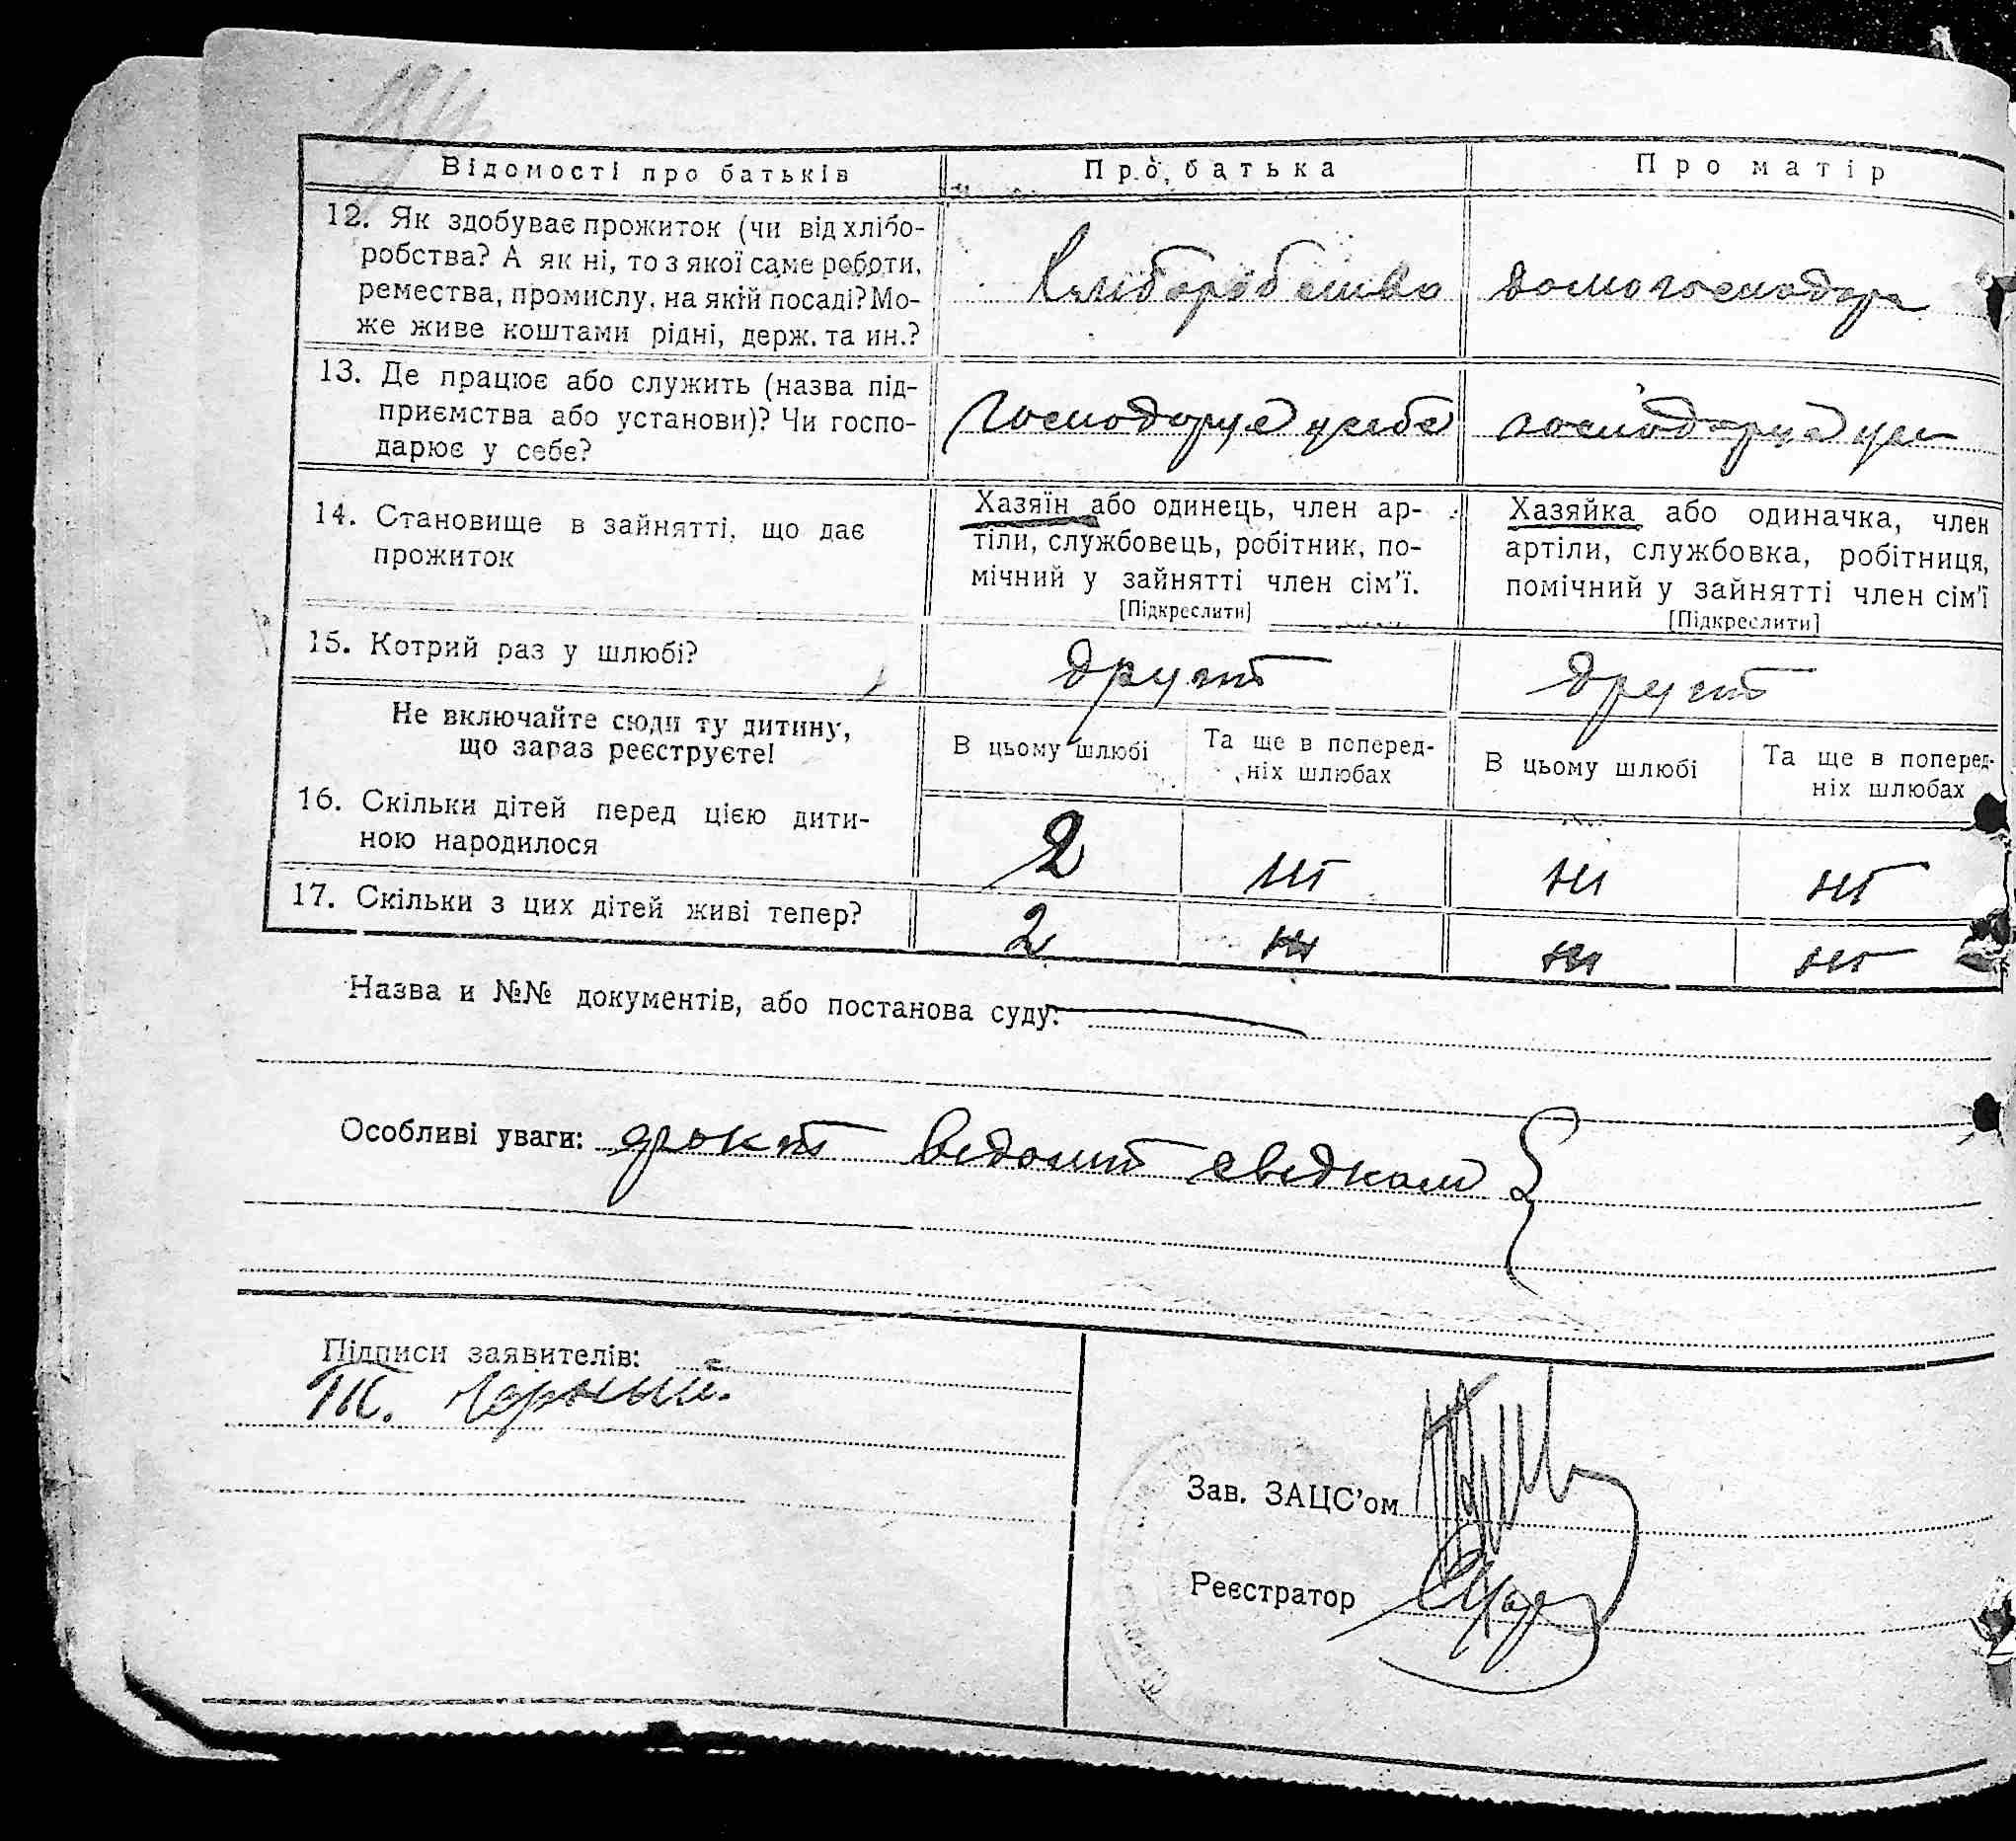 Відомості про батьків
Про батька
Про матір
12. Як здобуває прожиток (чи від хлібо-
робства? А як ні, то з якої саме роботи,
ремества, промислу, на якій посаді? Мо-
же живе коштами рідні, держ. та ин.?
хліборобство
домогосподара
13. Де працює або служить (назва під-
приємства або установи)? Чи госпо-
дарює у себе?
господорує у себе
господарує у се
14. Становище в зайнятті, що дає
прожиток
Хазяїн або одинець, член ар-
тіли, службовець, робітник, по-
мічний у зайнятті член сім'ї.
[Підкреслити]
Хазяйка або одиначка, член
артіли, службовка, робітниця,
помічний у зайнятті член сім'ї
[Підкреслити]
15. Котрий раз у шлюбі?
другий
другий
Не включайте сюди ту дитину,
що зараз реєструєте!
В цьому шлюбі
Та ще в поперед-
ніх шлюбах
В цьому шлюбі
Та ще в поперед-
ніх шлюбах
16. Скільки дітей перед цією дити-
ною народилося
2
ніт
ні
ніт
17. Скільки з цих дітей живі тепер?
2
ні
ніт
Назва и №№ документів, або постанова суду:
Особливі уваги: факт відомий свідкам
Підписи заявителів:
Т. Чорный.
Зав. ЗАЦС'ом
Реєстратор